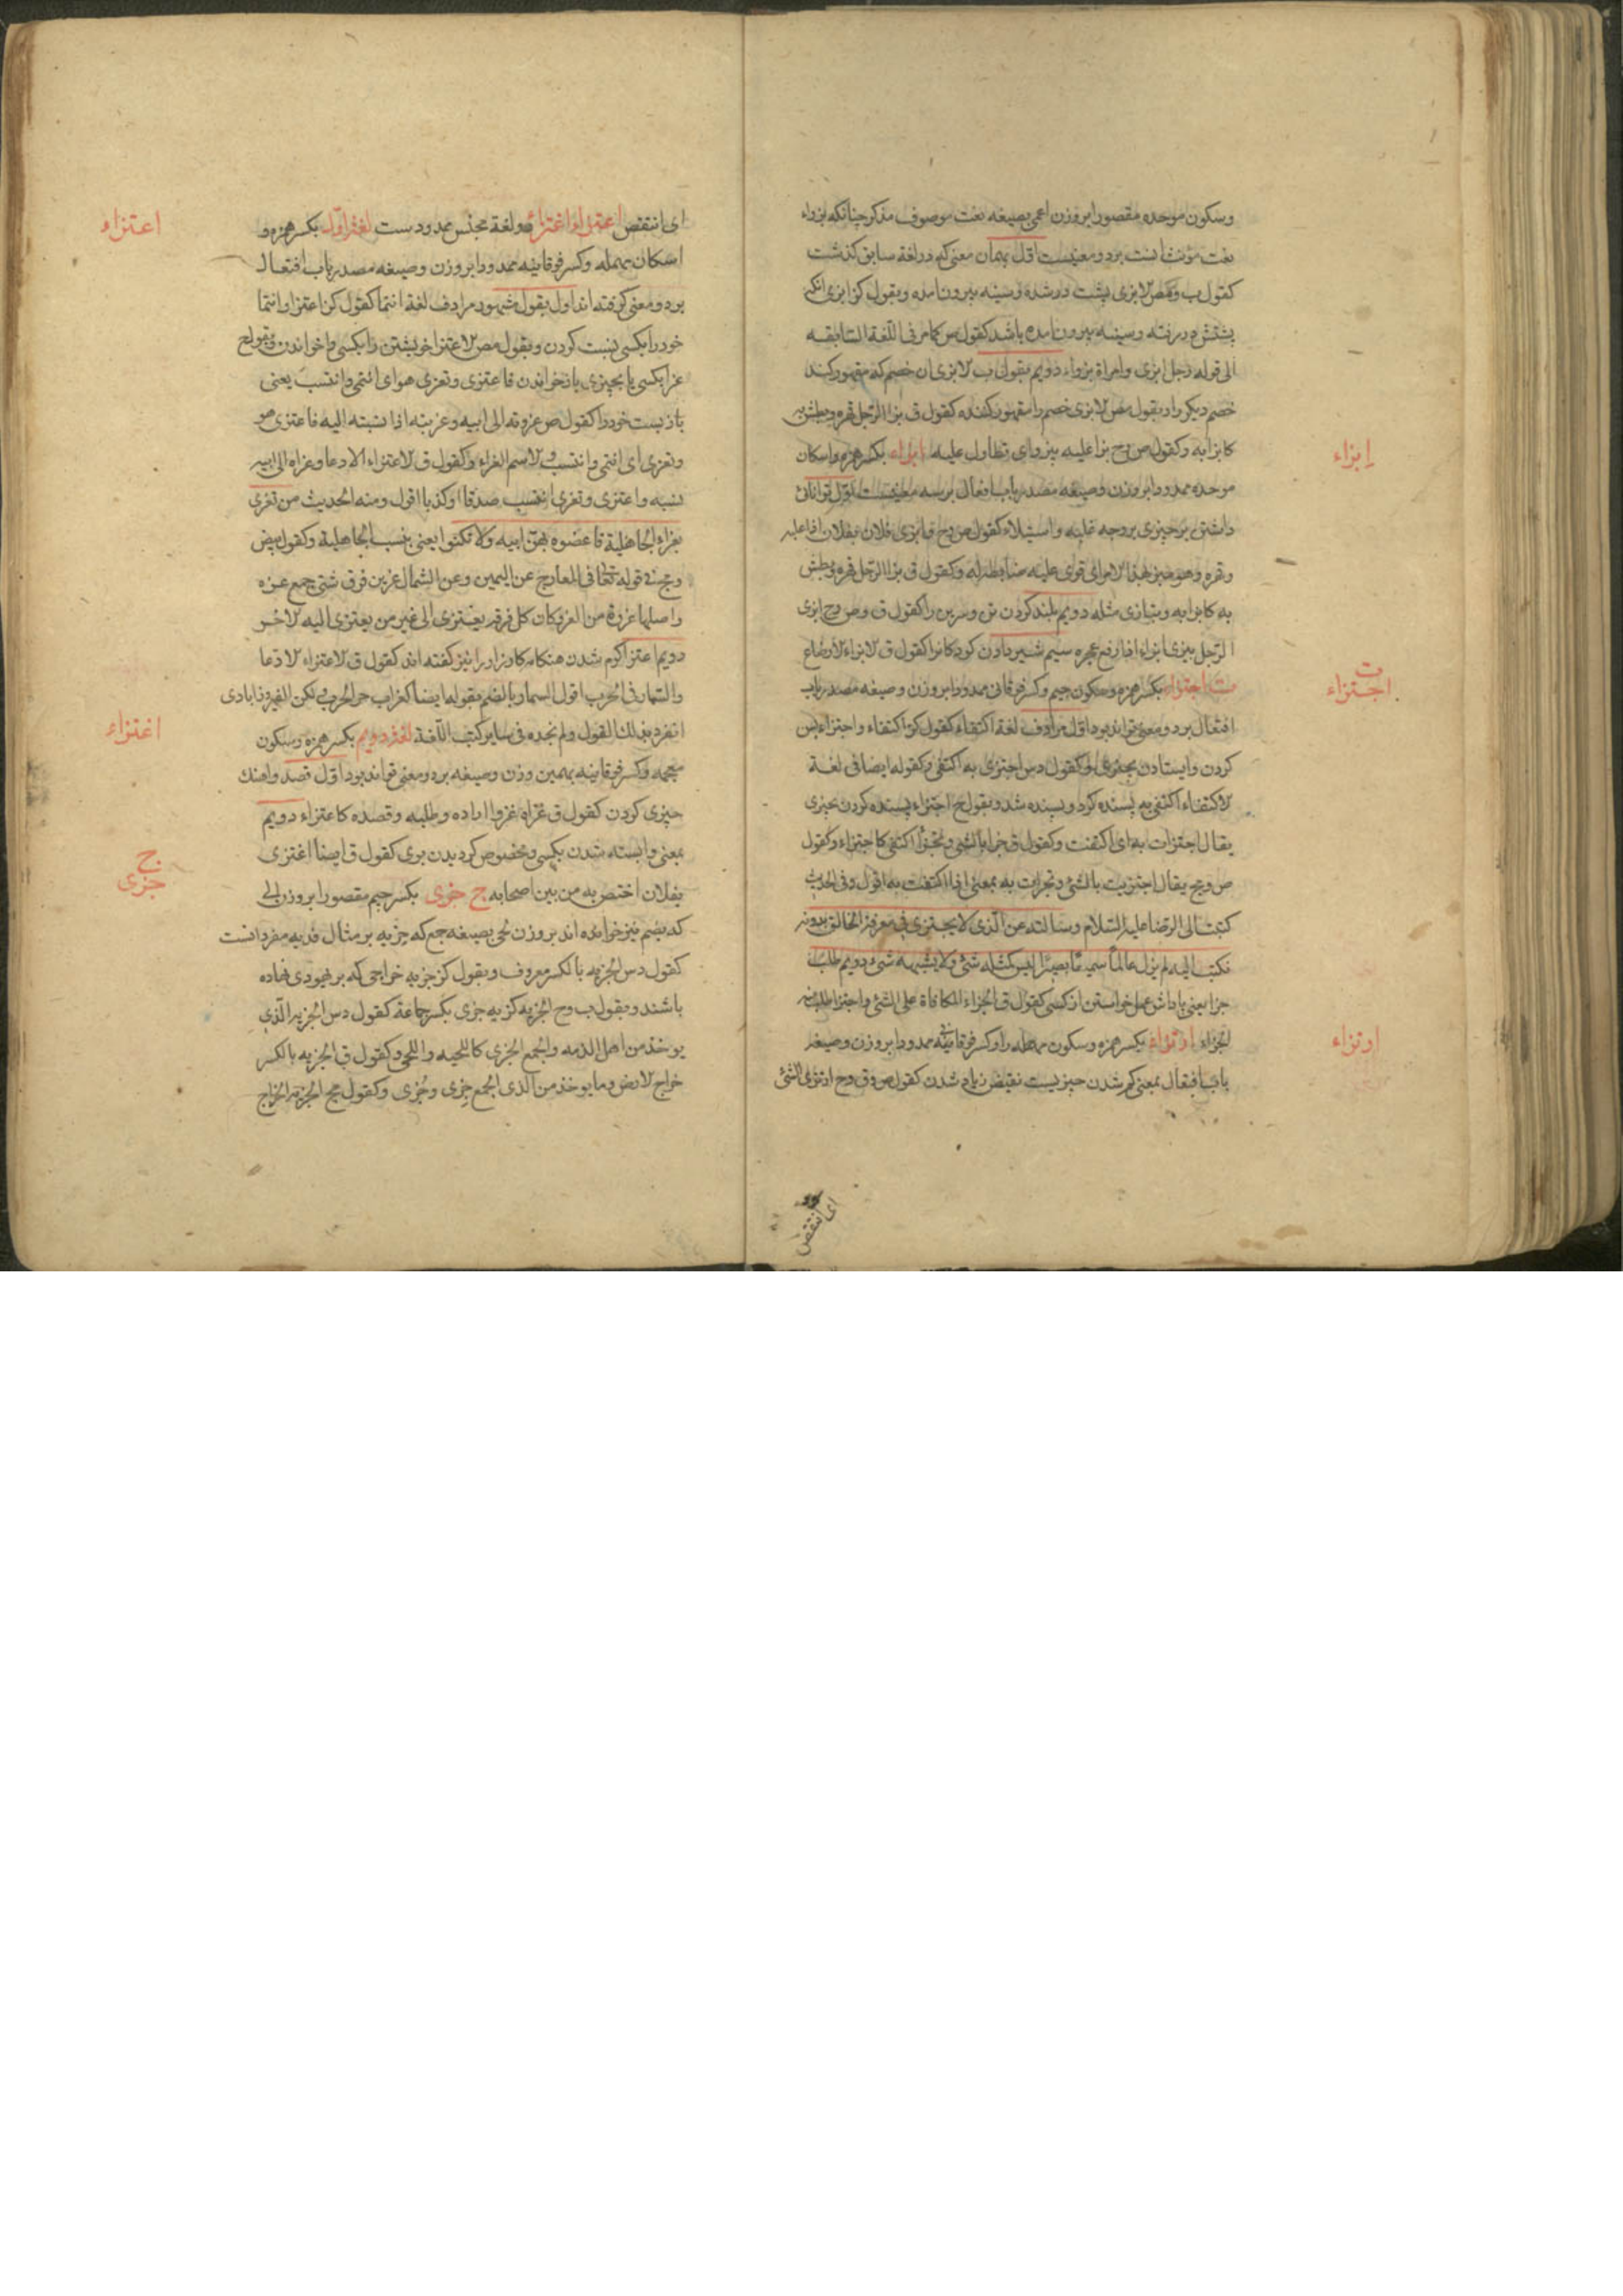 وسکون موحده مقصورا بروزن اعمی بصیغه نعت موصوف مذکر چنانکه بزواء
نعت مؤنث انست برد و معنیست اول بهمان معنی که در لغة سابق کذشت
کقول ب وقص الابزی پشت در شده وسینه بیرون امده وبقول کز ابزی انکه
پشتش در رفته وسینه بیرون امده باشد کقول ص کامر فی اللغة السابقه
الی قوله رجل ابزی وامراة بزواء دویم بقول ب الابزی ان خصم که مقهور کند
خصم دیکر را وبقول مص الابزی خصم را مقهور کننده کقول ق بزا الرجل قهره وبطش به
کابزا به وکقول ص وح بزا علیه یبزوای تطاول علیه ابزاء بکسر همزه واسکان
موحده ممدودا بروزن وصیغه مصدر باب افعال برسه معنیست اول توانائی
داشتن بر چیزی بر وجه غلبه واستیلاء کقول ص وح ابزی فلان بفلان اذا غلبه
وقهره وهو مبز بهذا الامر ای قوی علیه ضابط له وکقول ق بزا الرجل قهره وبطش
به کابزا به ویتبازی مثله دویم بلند کردن تن وسرین را کقول ق وص وح ابزی
الرجل یبزی ابزاء اذا رفع عجزه سیم شیر دادن کودکانرا کقول ق الابزاء الارضاع
ت اجتزاء بکسر همزه وسکون جیم وکسر فوقانی ممدودا بروزن وصیغه مصدر باب
افتعال برد و معنی تواند بود اول مرادف لغة اکتفاء کقول کز اکتفاء واجتزاء بس
کردن وایستادن بچیزی کقول دس اجتزی به اکتفی وکقوله ایضا فی لغة
الاکتفاء اکتفی به پسنده کرد وپسنده شد وبقول ح اجتزاء پسنده کردن بچیزی
یقال اجتزات به ای اکتفیت وکقول ق جزا بالشئ وتجزأ اکتفی کاجتزاء وکقول
ص وح یقال اجتزیت بالشئ وتجزات به بمعنی اذا اکتفیت به اقول وفی الحدیث
کتبت الی الرضا علیه السلام وسالته عن الذی لا یجتزی فی معرفة الخالق بدونه
فکتب الیه لم یزل عالما سمیعا بصیرا لیس کمثله شئ ولا یشبهه شئ دویم طلب
جزا یعنی پاداش عمل خواستن از کسی کقول ق الجزاء المکافاة علی الشئ واجتزا طلب منه
الجزاء اوتزاء بکسر همزه وسکون مهمله راو کسر فوقانیه ممدودا بروزن وصیغه
باب افتعال بمعنی کم شدن چیزیست نقیض زیاد شدن کقول ص وق وح اوتزی الشئ
ای انتقص
إبزاء
ت
اجتزاء
اوتزاء
ای انتقص اعتزاء اغتزاء دو لغة مجنس ممدودست لغة اول بکسر همزه و
اسکان مهمله وکسر فوقانیه ممدودا بروزن وصیغه مصدر باب افتعال
برد و معنی کرفته اند اول بقول مشهور مرادف لغة انتما کقول کز اعتزا وانتما
خود را بکسی نسبت کردن وبقول مص الاعتزا خویشتن را بکسی واخواندن وبقول ح
عزا بکسی یا بچیزی باز خواندن فاعتزی وتعزی هو ای انتمی وانتسب یعنی
باز بست خود را کقول ص عزوته الی ابیه وعزیته اذا نسبته الیه فاعتزی هو
وتعزی ای انتمی وانتسب والاسم العزاء وکقول ق الاعتزاء الادعا وعزاه الی ابیه
نسبه واعتزی وتعزی انتسب صدقا او کذبا اقول ومنه الحدیث من تعزی
بعزاء الجاهلیة فاعضوه بهن ابیه ولا تکنوا یعنی بنسب الجاهلیة وکقول بیض
وجج فی قوله تعالی فی المعارج عن الیمین وعن الشمال عزین فرق شتی جمع عزه
واصلها عزوة من العزو کان کل فرقه یعتزی الی غیر من یعتزی الیه الاخر
دویم اعتزا کرم شدن هنکامه کارزار را نیز کفته اند کقول ق الاعتزاء الادعا
والشعار فی الحرب اقول السعار بالضم بقوله ایضا کغراب حر الحرب لکن الفیروزابادی
انفرد بذلک القول ولم نجده فی سایر کتب اللغة لغة دویم بکسر همزه وسکون
معجمه وکسر فوقانیه بهمین وزن وصیغه برد و معنی تواند بود اول قصد واهنک
چیزی کردن کقول ق غزاه غزوا اراده وطلبه وقصده کاغتزاء دویم
بمعنی وابسته شدن بکسی ومخصوص کردیدن بوی کقول ق ایضا اغتزی
بفلان اختص به من بین اصحابه ج جزی بکسر جیم مقصورا بروزن لحی
که بضم نیز خوانده اند بروزن لحی بصیغه جمع که جزیه بر مثال فدیه مفرد انست
کقول دس الجزیه بالکسر معروف وبقول کز جزیه خراجی که بر یهودی نهاده
باشند وبقول ب وح الجزیه کزیه جزی بکسر جماعة کقول دس الجزیه الذی
یوخذ من اهل الذمه والجمع الجزی کاللحیه واللحی وکقول ق الجزیه بالکسر
خراج الارض وما یوخذ من الذمی الجمع جزی وجزی وکقول مج الجزیه الخراج
اعتزاء
اغتزاء
ج
جزی